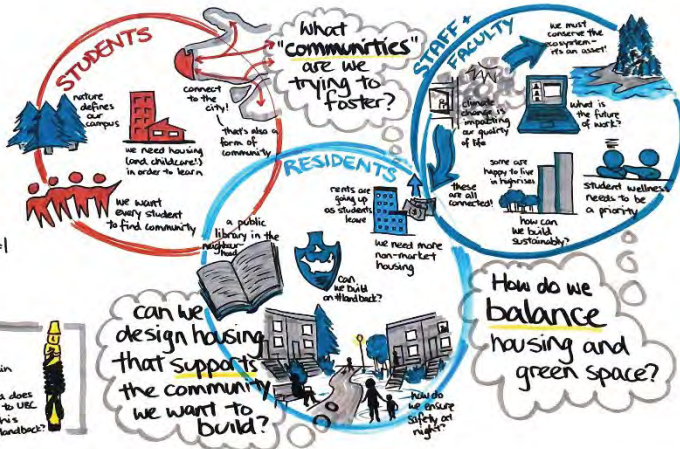 STUDENTS
nature
defines
our
campus
we need housing
(and childcare!)
in order to learn
connect
to the
city!
that's also a
form of
community
we want
every student
to find community
What
"communities"
are we
trying to
foster?
STAFF +
FACULTY
we must
conserve the
ecosystem-
it's an asset!
climate
change is
impacting
our quality
of life
what is
the future
of work?
these
are all
connected!
some are
happy to live
in highrises
how can
we build
sustainably?
student wellness
needs to be
a priority
RESIDENTS
rents are
going up
as students
leave
we need more
non-market
housing
a public
library in the
neighbour-
hood
can
we build
on #landback?
how do
we ensure
safety at
night?
can we
design housing
that supports
the community
we want to
build?
How do we
balance
housing and
green space?
in
does
to UBC
his
landback?